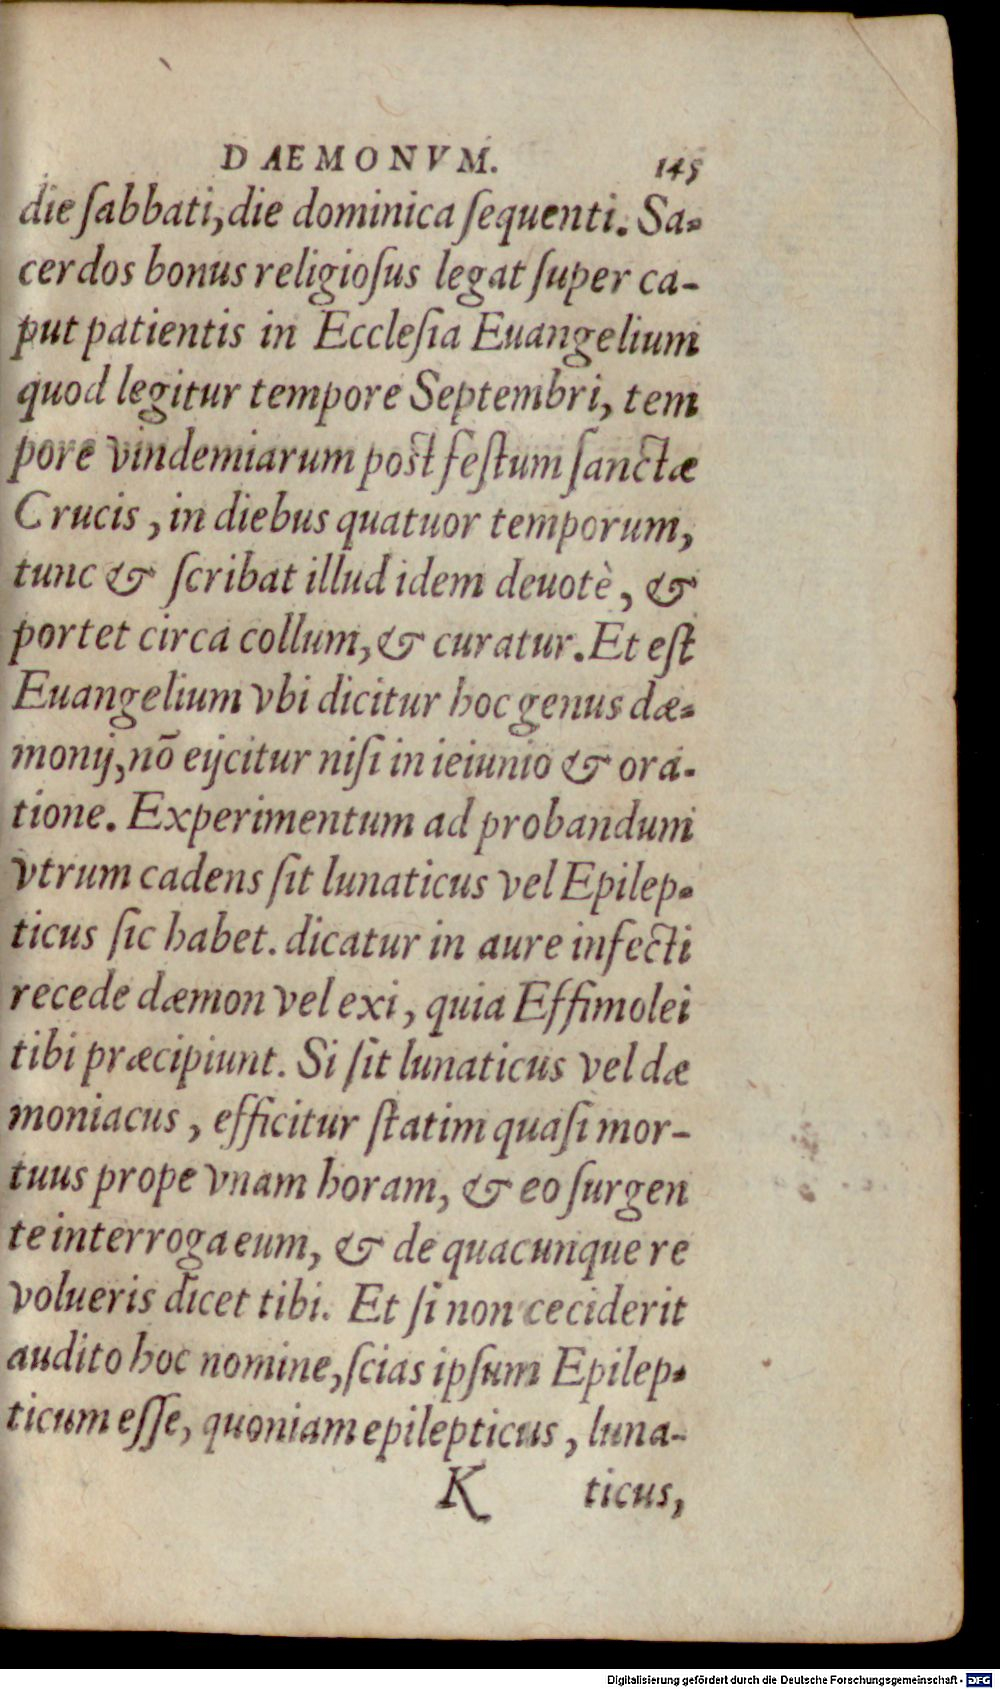 DAEMONVM. 145
die ſabbati, die dominica ſequenti. Sa-
cerdos bonus religioſus legat ſuper ca-
put patientis in Eccleſia Euangelium
quod legitur tempore Septembri, tem
pore vindemiarum poſt feſtum ſanctæ
Crucis, in diebus quatuor temporum,
tunc & ſcribat illud idem deuotè, &
portet circa collum, & curatur. Et eſt
Euangelium vbi dicitur hoc genus dæ-
monij, nō eijcitur niſi in ieiunio & ora-
tione. Experimentum ad probandum
vtrum cadens ſit lunaticus vel Epilep-
ticus ſic habet. dicatur in aure infecti
recede dæmon vel exi, quia Effimolei
tibi præcipiunt. Si ſit lunaticus vel dæ
moniacus, efficitur ſtatim quaſi mor-
tuus prope vnam horam, & eo ſurgen
te interroga eum, & de quacunque re
volueris dicet tibi. Et ſi non ceciderit
audito hoc nomine, ſcias ipſum Epilep-
ticum eſſe, quoniam epilepticus, luna-
K ticus,
Digitalisierung gefördert durch die Deutsche Forschungsgemeinschaft - DFG